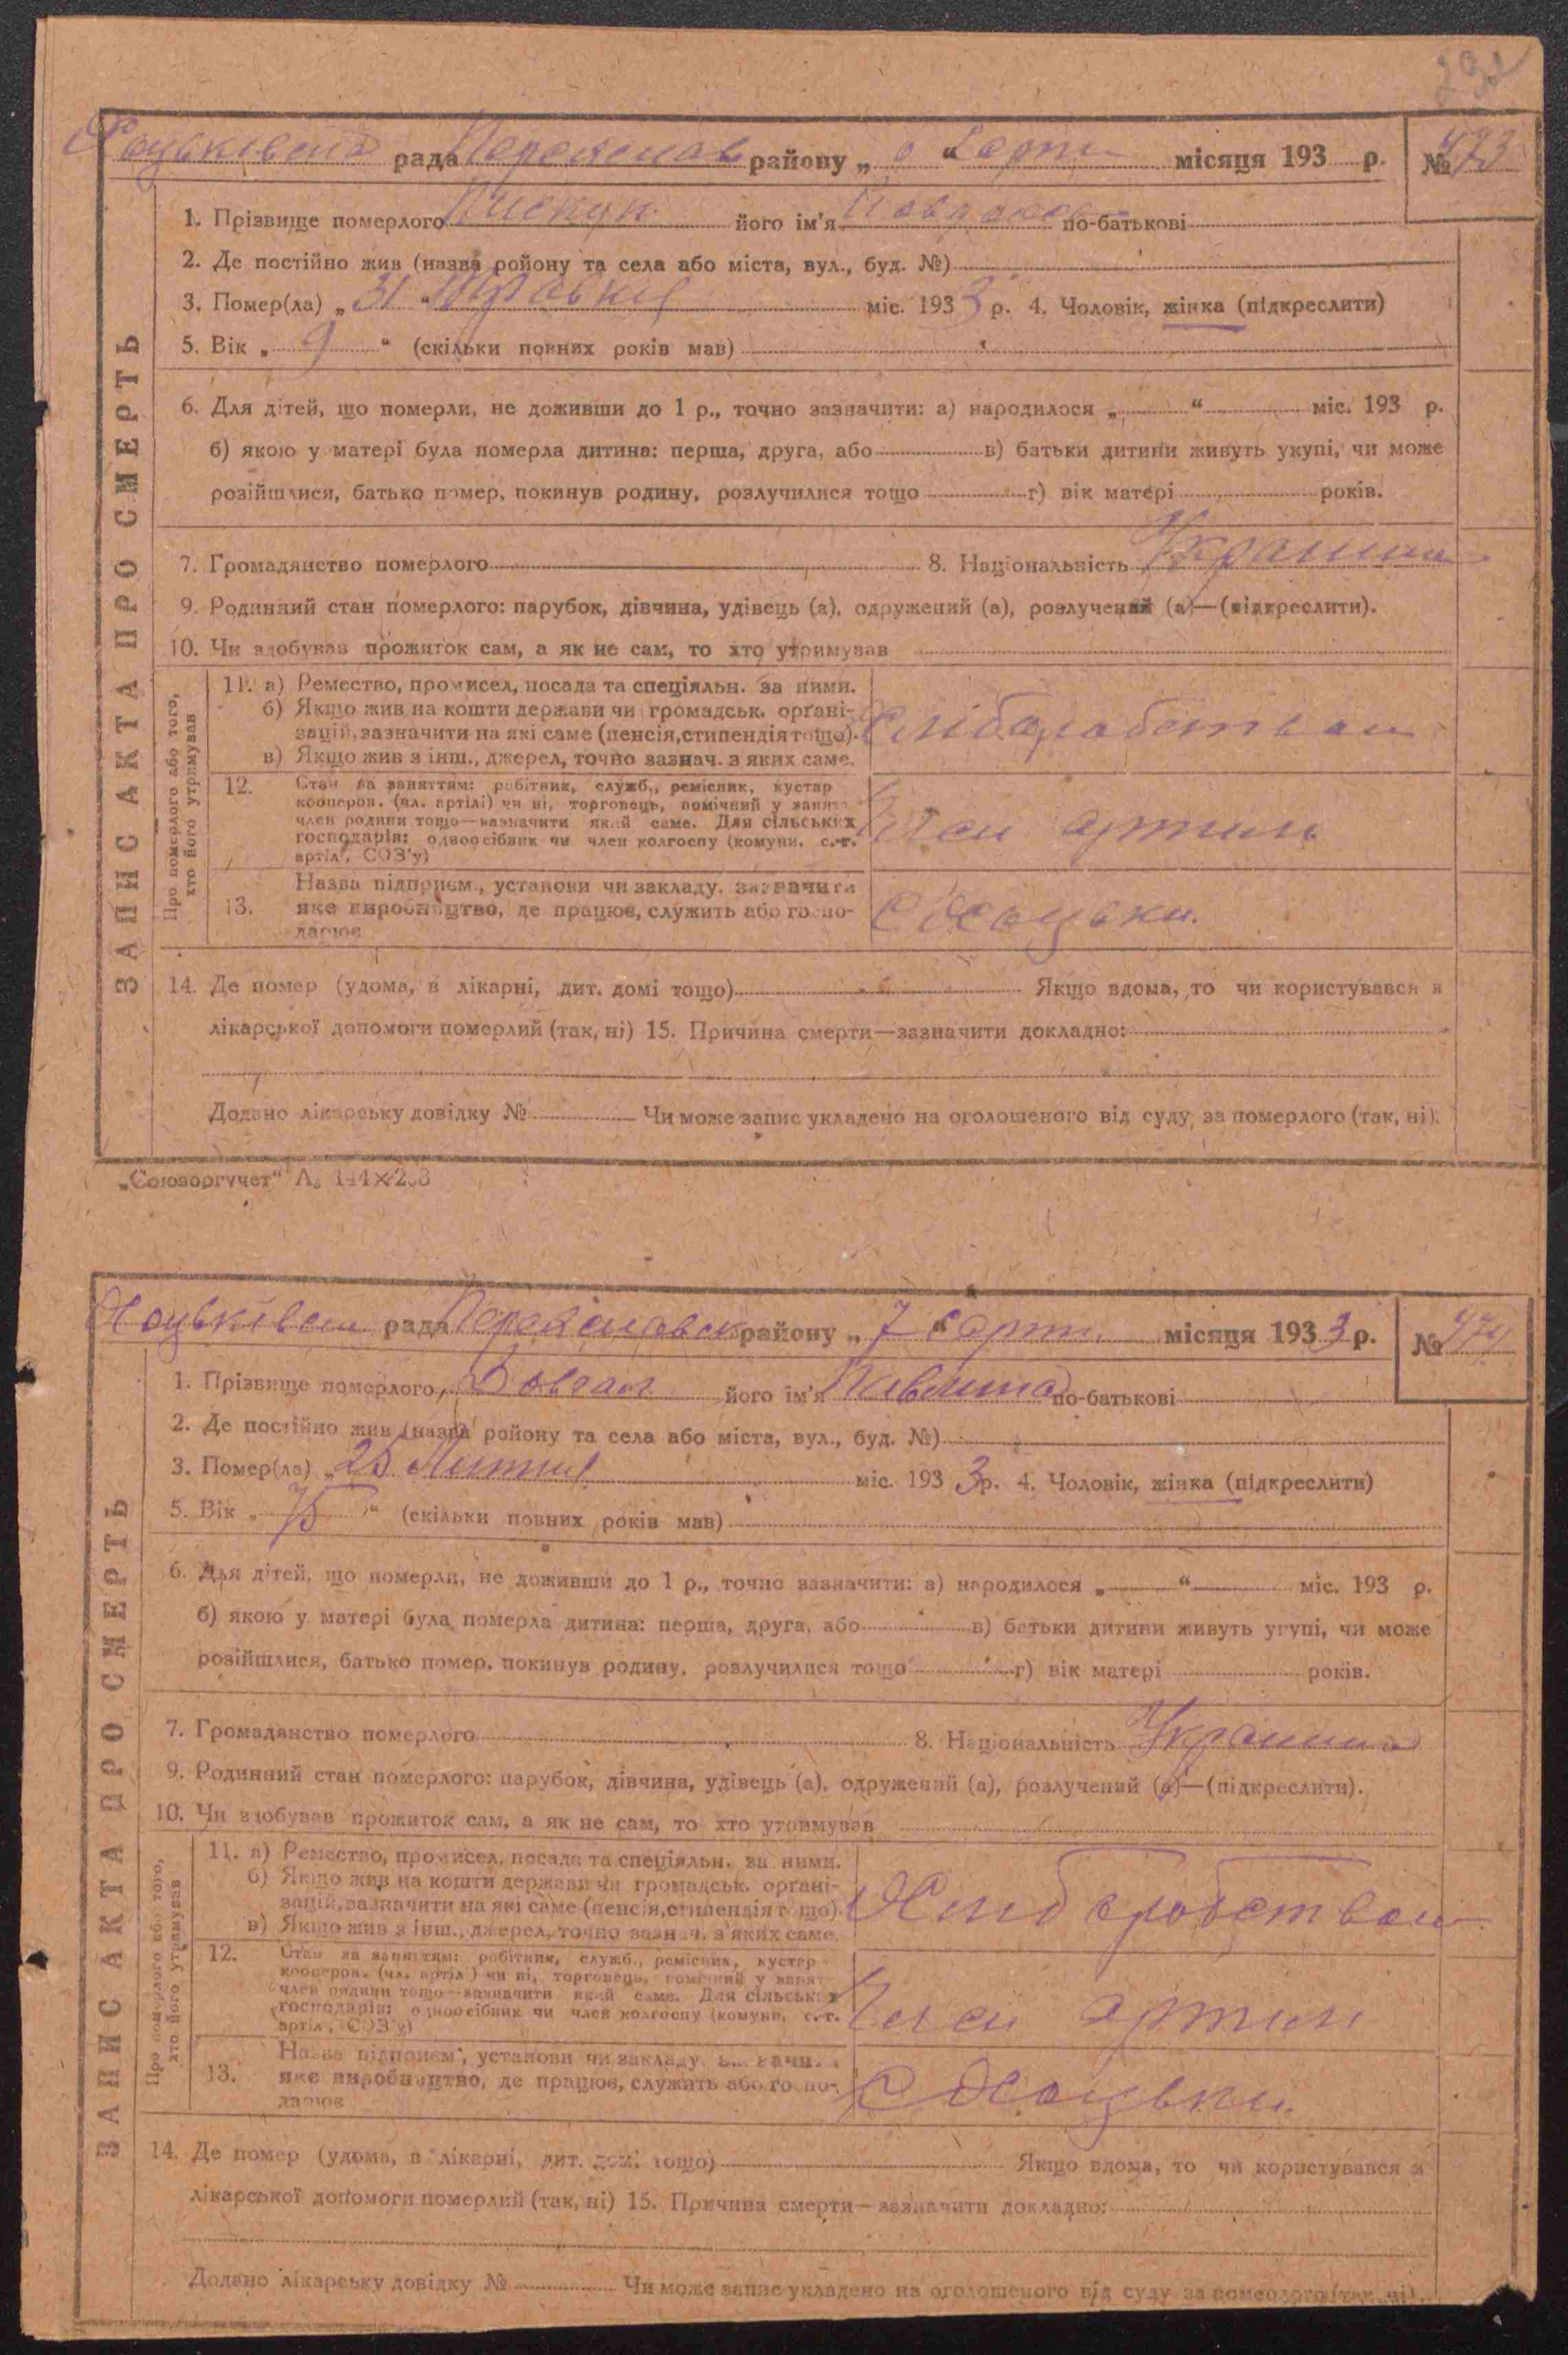 232
Хоцьківська рада Переяслав району „ “ Серпн місяця 193 р. № 473
1. Прізвище померлого Пискун його ім'я по-батькові
2. Де постійно жив (назва ройону та села або міста, вул., буд. №)
3. Помер(ла) „ 31 “ міс. 193 3 р. 4. Чоловік, жінка (підкреслити)
5. Вік „ 9 “ (скільки повних років мав)
6. Для дітей, що померли, не доживши до 1 р., точно зазначити: а) народилося „ “ міс. 193 р.
б) якою у матері була померла дитина: перша, друга, або в) батьки дитини живуть укупі, чи може
розійшлися, батько помер, покинув родину, розлучилися тощо г) вік матері років.
7. Громадянство померлого 8. Національність Украинка
9. Родинний стан померлого: парубок, дівчина, удівець (а), одружений (а), розлучений (а)—(підкреслити).
10. Чи здобував прожиток сам, а як не сам, то хто утримував
ЗАПИС АКТА ПРО СМЕРТЬ
Про померлого або того, хто його утримував
11. а) Ремество, промисел, посада та спеціяльн. за ними.
б) Якщо жив на кошти держави чи громадськ. орґані-
зацій, зазначити на які саме (пенсія, стипендія тощо).
в) Якщо жив з інш., джерел, точно зазнач. з яких саме.
Хліборобством
12. Стан за заняттям: робітник, служб., ремісник, кустар
кооперов. (чл. артілі) чи ні, торговець, помічний у занят
член родини тощо—зазначити який саме. Для сільських
господарів: одноосібник чи член колгоспу (комуни, с.-г.
артілі, СОЗ'у)
Член артили
13. Назва підприєм., установи чи закладу, зазначити
яке виробництво, де працює, служить або госпо-
дарює
С Хоцьки.
14. Де помер (удома, в лікарні, дит. домі тощо) Якщо вдома, то чи користувався з
лікарської допомоги померлий (так, ні) 15. Причина смерти—зазначити докладно:
Додано лікарську довідку № Чи може запис укладено на оголошеного від суду за померлого (так, ні).
„Союзоргучет“
Хоцьківська рада Переяславськ району „ 7 “ Серпн місяця 193 3 р. № 474
1. Прізвище померлого Довгал його ім'я по-батькові
2. Де постійно жив (назва ройону та села або міста, вул., буд. №)
3. Помер(ла) „ 25 Липня міс. 193 3 р. 4. Чоловік, жінка (підкреслити)
5. Вік „ 75 “ (скільки повних років мав)
6. Для дітей, що померли, не доживши до 1 р., точно зазначити: а) народилося „ “ міс. 193 р.
б) якою у матері була померла дитина: перша, друга, або в) батьки дитини живуть укупі, чи може
розійшлися, батько помер, покинув родину, розлучилися тощо г) вік матері років.
7. Громадянство померлого 8. Національність Украинка
9. Родинний стан померлого: парубок, дівчина, удівець (а), одружений (а), розлучений (а)—(підкреслити).
10. Чи здобував прожиток сам, а як не сам, то хто утримував
ЗАПИС АКТА ПРО СМЕРТЬ
Про померлого або того, хто його утримував
11. а) Ремество, промисел, посада та спеціяльн. за ними.
б) Якщо жив на кошти держави чи громадськ. орґані-
зацій, зазначити на які саме (пенсія, стипендія тощо).
в) Якщо жив з інш., джерел, точно зазнач. з яких саме.
Хлиборобством
12. Стан за заняттям: робітник, служб., ремісник, кустар
кооперов. (чл. артілі) чи ні, торговець, помічний у занят
член родини тощо—зазначити який саме. Для сільських
господарів: одноосібник чи член колгоспу (комуни, с.-г.
артілі, СОЗ'у)
Член артили
13. Назва підприєм., установи чи закладу, зазначити
яке виробництво, де працює, служить або госпо-
дарює
С Хоцьки.
14. Де помер (удома, в лікарні, дит. домі тощо) Якщо вдома, то чи користувався з
лікарської допомоги померлий (так, ні) 15. Причина смерти—зазначити докладно:
Додано лікарську довідку № Чи може запис укладено на оголошеного від суду за померлого (так, ні).